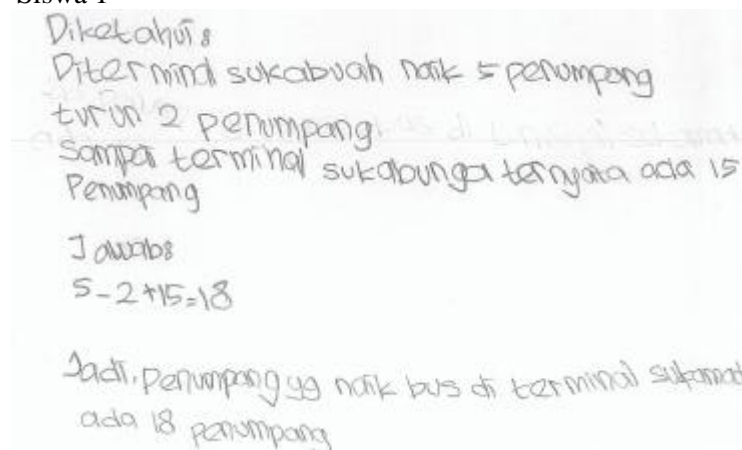 Siswa 1
Diketahui:
Diterminal sukabuah naik 5 penumpang
turun 2 penumpang
Sampai terminal sukabunga ternyata ada 15
Penumpang
Jawab:
5-2+15=18
Jadi, penumpang yg naik bus di terminal sukamat
ada 18 penumpang